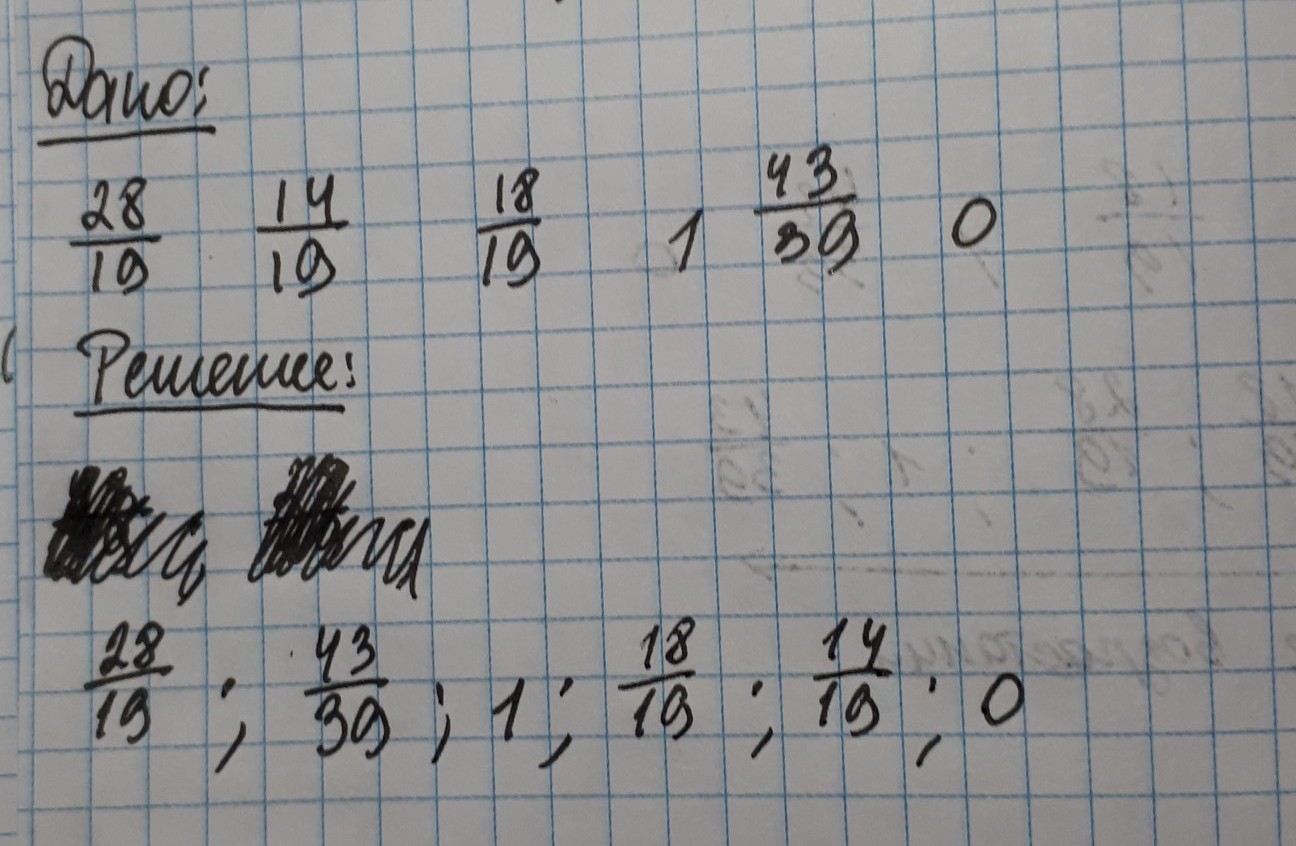 Дано:
28/19 14/19 18/19 1 43/39 0
Решение:
28/19 ; 43/39 ; 1 ; 18/19 ; 14/19 ; 0